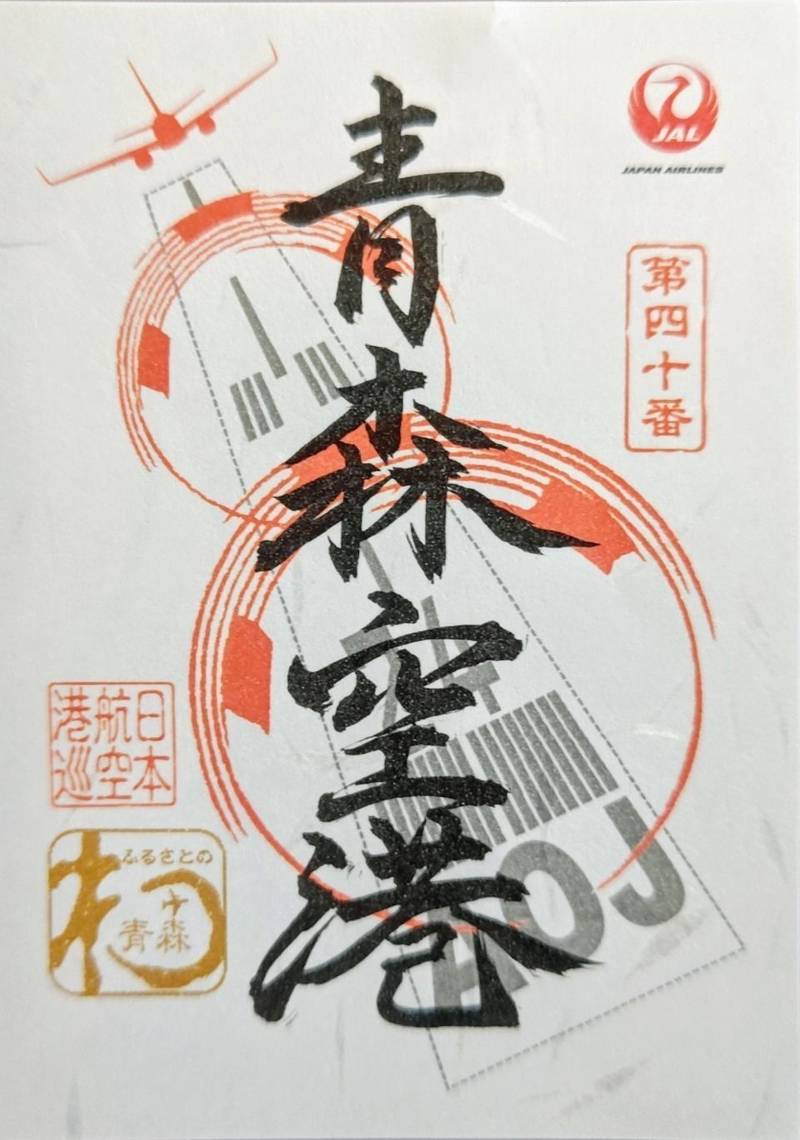 青森空港
JAL
JAPAN AIRLINES
第四十番
日本
航空
港巡
ふるさとの
青森
AOJ